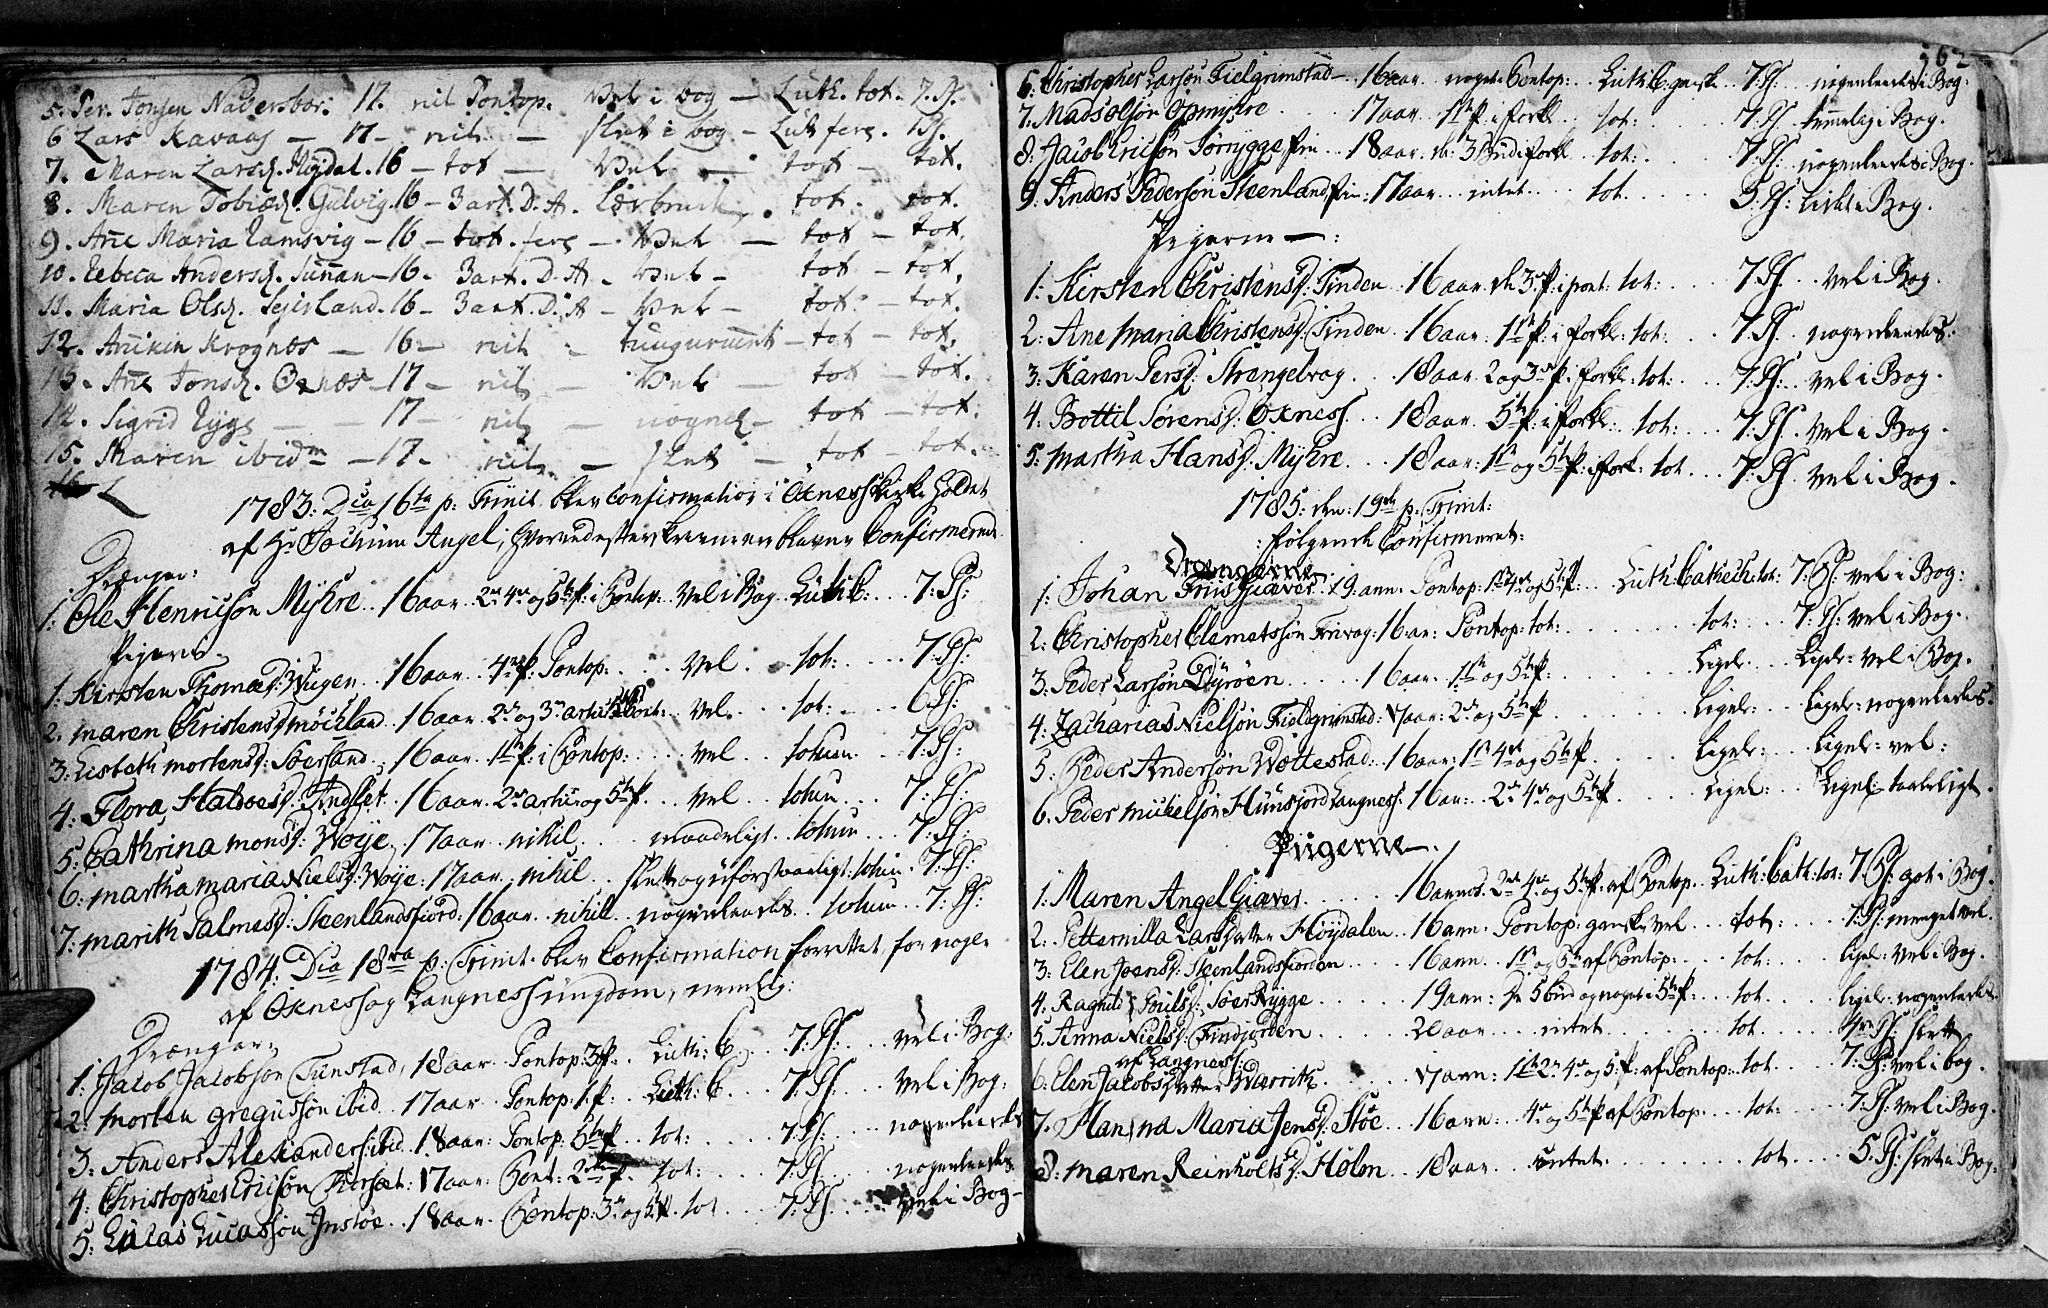 5. Per. Jonsen Naversbor. 17. nil Pontop. vel i bog — Luth. tot. 7. Ps.
6 Lars Kavaag — 17 — nil — slet i bog — Luth ferè. 7 Ps.
7. Maren Larsd. Høydal. 16 — tot — vel — tot — tot.
8. Maren Tobiæd. Gulvig. 16 — 3 art. D. A. tot. tot.
9. Añe Maria Ramsvig — 16 — tot. ferè — vel — tot — tot.
10. Rebeca Andersd. Tunnan — 16 — 3 art. D. A. vel — tot — tot.
11. Maria Olsd. Sejerland. 16 — 3 art. D. A — vel — tot — tot.
12. Anikin Krognæs — 16 — nil — tot — tot.
13. Añe Jonsd. Oxnæs — 17 — nil — vel — tot — tot.
14. Sigrid Rygg — 17 — nil — nogenl — tot — tot.
15. Maren ibidm — 17 — nil — slet — tot — tot.
1783: Dca 16ta p: Trinit. blev Confirmation i Øxness Kirke holdet
af Hr Jochum Angel, hvorved efterskrevne blevne Confirmerede
Drenger:
1: Ole Henrichsøn Myhre 16 aar 2den 4de og 5te p: i Pontop: vel i Bog Luth: C: 7: Ps:
Pigerne
1. Kirsten Thomæd: Wugen 16 aar 4de p: Pontop: vel tot: 7: Ps:
2. Maren Christensd: Møchland 16 aar 2den og 3de art: vel tot: 6: Ps:
3: Lisbeth Mortensd: Soerland 16 aar 1ste p: i Pontop: vel totum 7: Ps:
4: Flora Halvorsd: Indset 16 aar 2den art: og 5te p: vel totum 7: Ps:
5: Cathrina Monsd: Woje 17 aar nihil maadeligt totum 7: Ps:
6: Martha Maria Nielsd: Woje: 17 aar nihil slett og uforstaaeligt: totum 7: Ps:
7: Marith Palmesd: Skeenlandsfiord: 16 aar nihil nogenledes totum 7: Ps:
1784: Dca 18va p: Trinit. blev Confirmation forrettet for nogle
af Øxness og Langness ungdom, nemlig:
Drengene
1. Jacob Jacobsøn Tunstad, 18 aar Pontop: 3 p: Luth: C: 7: Ps: vel i Bog:
2: Morten Gregussøn ibid 17 aar Pontop: 1. p: Luth: C 7: Ps: vel i Bog:
3: Anders Alexanders: ibid 18 aar: Pontop: 5te p tot: 7: Ps: nogenledes
4: Christopher Ericsøn Fiersæt: 17 aar: Pont: 2den p. tot: 7: Ps nogenledes
5: Lucas Lucassøn Instøe 18 aar Pontop: 3de og 5te p. tot 7: Ps vel i Bog —
6: Christopher Larsøn Fielgrimstad — 16 aar noget Pontop: Luth: C: ganske 7: Ps nogenledes i Bog:
7: Mads Olsøn Opmyhre 17 aar 1ste p: i Forkl: tot: 7: Ps temelig i Bog.
8: Jacob Ericsøn Sørrygge fin 18 aar de 3 Bud i Forkl: tot: 7: Ps: nogenledes i Bog.
9: Anders Pedersøn Skeenland, fin: 17 aar intet tot. 5: Ps: lidt i Bog.
Pigerne — :
1: Kirsten Christensd: Tinden 16 aar de 3 p: i pont: tot: 7: Ps. vel i Bog.
2: Ane Maria Christensd: Tinden 16 aar: 1ste p: i Forkl: tot: 7: Ps. nogenledes.
3: Karen Persd: Strengelvog 18 aar. 2 og 3de p: i Forkl: tot: 7: Ps: vel i Bog.
4: Bottil Sørensd: Øxness 18 aar 5te p: i Forkl: tot: 7: Ps vel i Bog.
5: Martha Hansd: Myhre 18 aar: 1ste og 5te p: i Forkl: tot 7: Ps vel i Bog.
1785: den: 19de p. Trinit:
følgende Confirmeret:
Drengerne
1: Johan Friis Giæver 19: aar: Pontop: 1ste 4de og 5te p: Luth: Cathech: tot: 7: Ps: vel i Bog:
2: Christopher Clemetssøn Frivog: 16 aar: Pontop: tot: tot: 7: Ps: vel i Bog.
3: Peder Larsøn Dyrøen 16 aar. 1ste og 5te p: Ligel: Ligel: vel i Bog.
4: Zacharias Nielsøn Fielgrimstad: 17 aar: 2den og 5te p Ligel: Ligel: nogenledes.
5: Peder Andersøn Wottestad: 16 aar: 1ste 4de og 5te p Ligel: Ligel: vel:
6. Peder Mickelsøn Hunsfiord Langness: 16 aar: 2den 4de og 5te p. Ligel: Ligel: taaleligt.
Piigerne.
1. Maren Angel Giæver 16 aar 2den 4de og 5te p. af Pontop. Luth: Cath: tot: 7. Ps: got i Bog.
2: Petternilla Larsdatter Høydalen 16 aar: Pontop: ganske vel tot: 7: Ps: meeget vel.
3: Elen Joensd: Skeenlandsfiorden 16 aar 1ste og 5te af Pontop: tot: ligel: vel i Bog.
4: Ragnild Poulsd: Sør Rygge 19 aar: De 5 bud og noget i 5te p: tot: ligel: nogenledes
5. Anna Nielsd: Findfiorden 20 aar intet tot. Ps: slett
af Langness:
6: Elen Jacobsdatter Warvik 17 aar: 1ste 2den 4de og 5: p: af Pontop: tot 7: Ps: vel i bog.
7. Hanna Maria Jensd: Støe 16 aar: 4de og 5te p af Pontop. tot: 7: Ps: vel i Bog.
8: Maren Reinholtsd: Holm 18 aar intet tot 5: Ps: slet i Bog: